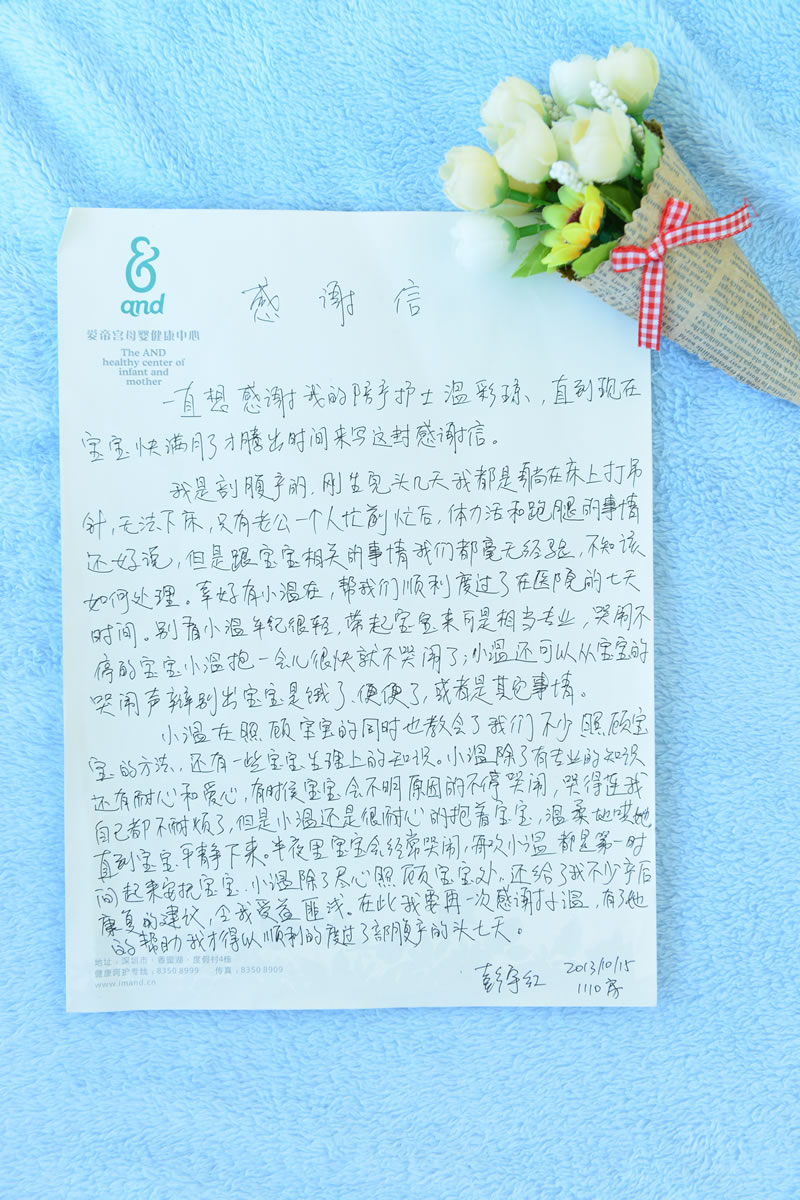 and
爱帝宫母婴健康中心
The AND
healthy center of
infant and
mother
感谢信
一直想感谢我的陪产护士温彩琼、直到现在
宝宝快满月了才腾出时间来写这封感谢信。
我是剖腹产的，刚生完头几天我都是躺在床上打吊
针，无法下床，只有老公一个人忙前忙后，体力活和跑腿的事情
还好说，但是跟宝宝相关的事情我们都毫无经验，不知该
如何处理。幸好有小温在，帮我们顺利度过了在医院的七天
时间。别看小温年纪很轻，带起宝宝来可是相当专业，哭闹不
停的宝宝小温抱一会儿很快就不哭闹了；小温还可以从宝宝的
哭闹声辩别出宝宝是饿了、便便了，或者是其它事情。
小温在照顾宝宝的同时也教会了我们不少照顾宝
宝的方法，还有一些宝宝生理上的知识。小温除了有专业的知识
还有耐心和爱心，有时侯宝宝会不明原因的不停哭闹，哭得连我
自己都不耐烦了，但是小温还是很耐心的抱着宝宝，温柔地哄她
直到宝宝平静下来。半夜里宝宝会经常哭闹，每次小温都是第一时
间起来安抚宝宝。小温除了尽心照顾宝宝外，还给了我不少产后
康复的建议，令我受益匪浅。在此我要再一次感谢小温，有了她
的帮助我才得以顺利的度过了剖腹产的头七天。
2013/10/15
1110房
地址：深圳市·香蜜湖·度假村4栋
健康呵护专线：8350 8999 传真：8350 8909
www.imand.cn